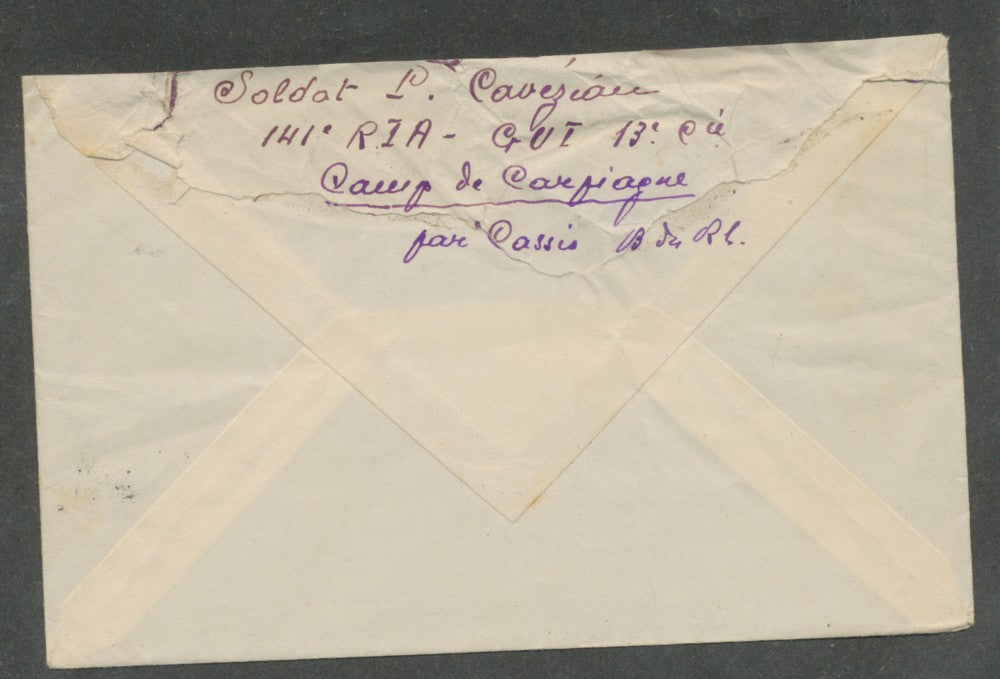 Soldat P. Cavézian
141e RIA - GUI 13e Cie
Camp de Carpiagne
par Cassis B du Rh.